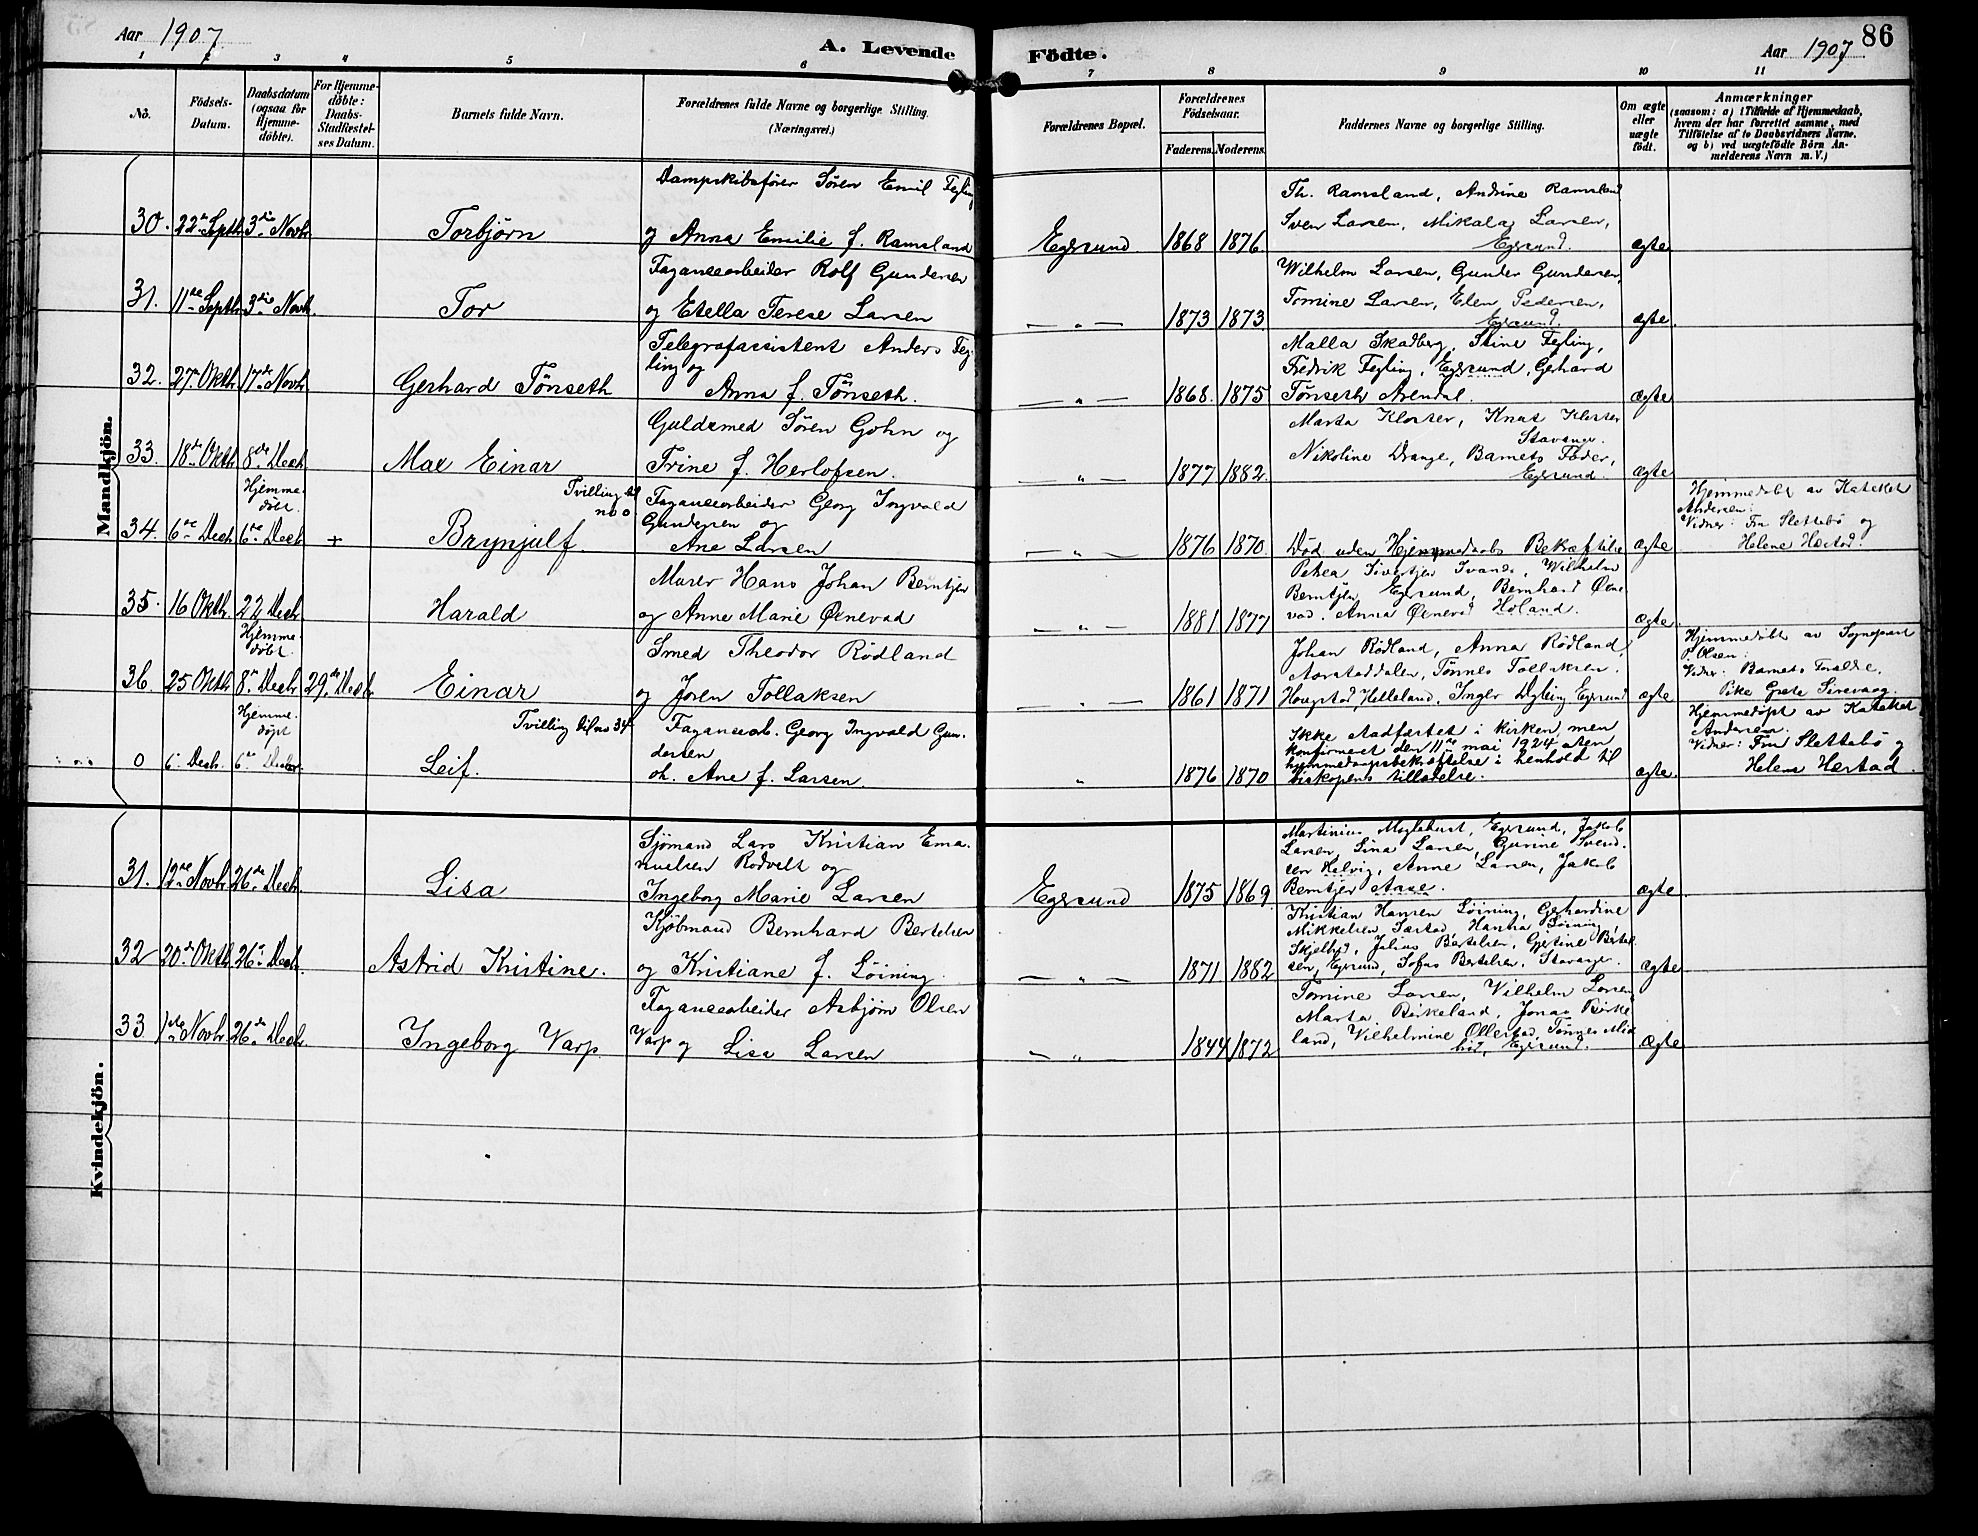 Aar 1907
A. Levende
Födte.
Aar 1907
86
1 2 3 4 5 6 7 8 9 10 11
No.
Födsels-
Datum.
Daabsdatum
(ogsaa for
Hjemme-
döbte).
For Hjemme-
döbte:
Daabs-
Stadfæstel-
ses Datum.
Barnets fulde Navn.
Forældrenes fulde Navne og borgerlige Stilling.
(Næringsvei.)
Forældrenes Bopæl.
Forældrenes
Födselsaar.
Faderens. Moderens.
Faddernes Navne og borgerlige Stilling.
Om ægte
eller
uægte
födt.
Anmærkninger
(saasom: a) i Tilfælde af Hjemmedaab,
hvem der har forrettet samme, med
Tilföielse af to Daabsvidners Navne,
og b) ved uægtefödte Börn An-
melderens Navn m. V.)
Mandkjön.
30. 22de Septb. 3die Novbr.
Torbjörn
Dampskibsfører Sören Emil Fegling
og Anna Emilie f. Ramsland
Egersund 1868 1876
Th. Ramsland, Andrine Ramsland
Sven Larsen, Mikala Larsen,
Egersund.
ægte
31. 11te Septb. 3die Novbr.
Tor
Fagancearbeider Rolf Gundersen
og Etella Terese Larsen
— " — 1873 1873
Wilhelm Larsen, Gunder Gundersen,
Tomine Larsen, Elen Pedersen,
Egersund.
ægte
32. 27. Oktb. 17de Novb.
Gerhard Tönseth
Telegrafassistent Anders Feg-
ling og
Anna f. Tönseth.
— " — 1868. 1875
Malla Skadberg, Stine Fegling,
Fredrik Fegling, Egersund, Gerhard
Tönseth Arendal.
ægte
33. 18de Oktb. 8de Decb.
Max Einar
Guldsmed Sören Gohn og
Trine f. Herlofsen.
" 1877 1882.
Marta Kloster, Knut Kloster
Stavanger.
Nikoline Drange, Barnets Fader,
Egersund.
ægte
Hjemme-
döbt.
34. 6te Decb. 6te Decb. +
Tvilling til
no 0
Brynjulf.
Fagancearbeider Georg Ingvald
Gundersen og
Ane Larsen
— " — 1876 1870.
Död uden Hjemmedaabs Bekræftelse
ægte
Hjemmedöbt av Kateket
Andersen:
Vidner: Fru Slettebö og
Helene Hestad.
35. 16 Oktb. 22 Decb.
Harald
Murer Hans Johan Berntsen
og Anne Marie Örnevad
— " — 1881 1877
Berntsen Egersund, Bernhard Örne
vad. Anna Örnevad Höland.
ægte
Hjemme-
döbt.
36. 25 Oktb. 8de Decb. 29de Decb.
Einar
Smed Theodor Rödland
og Joren Tollaksen
— " — 1861 1871
Johan Rödland, Anna Rödland
Aarstaddalen, Tönnes Tollaksen.
Haugstad, Helleland. Inger Dyling Egersund
ægte
Hjemmedöbt av Sognepræst
P. Olsen:
Vidner: Barnets Foraldre.
Pike Grete Sirevaag.
Hjemme-
döpt
0 6. Decb. 6te Decbr.
Tvilling til no 34
Leif.
Faganceab. Georg Ingvald Gun-
dersen
oh. Ane f. Larsen.
" 1876 1870
Ikke stadfæstet i kirken, men
konfirmeret den 11te mai 1924 uten
hjemmedaapsbekræftelse i henhold til
biskopens tilladelse.
ægte.
Hjemmedöpt av Kateket
Andersen.
Vidner: Fru Slettebö og
Helene Hestad.
Kvindekjön.
31. 12te Novbr. 26de Decb.
Lisa
Sjömand Lars Kristian Ema-
nuelsen Rodvelt og
Ingeborg Marie Larsen
Egersund 1875 1869.
Martinius Myklebust, Egersund, Jakob
Larsen, Sina Larsen, Gurine Svend-
sen Helvig, Anne Larsen, Jakob
Berntsen Aase.
ægte
32 20de Oktb. 26de Decb.
Astrid Kristine.
Kjöbmand Bernhard Bertelsen
og Kristiane f. Löining.
— " — 1871 1882
Kristian Hansen Löining, Gerhardine
Mikkelsen Sæstad, Hanna Löining,
Skjelbred, Julius Bertelsen, Gjertine Bertel-
sen, Egersund, Sofus Bertelsen, Stavanger.
ægte
33 1ste Novbr. 26de Decb.
Ingeborg Varp
Fagancearbeider Asbjörn Olsen
Varp og Lisa Larsen
— " — 1844 1872
Tomine Larsen, Vilhelm Larsen,
Marta Birkeland, Jonas Birke
land, Vilhelmine Ollestad, Tönnes Mid
bröd, Egersund.
ægte